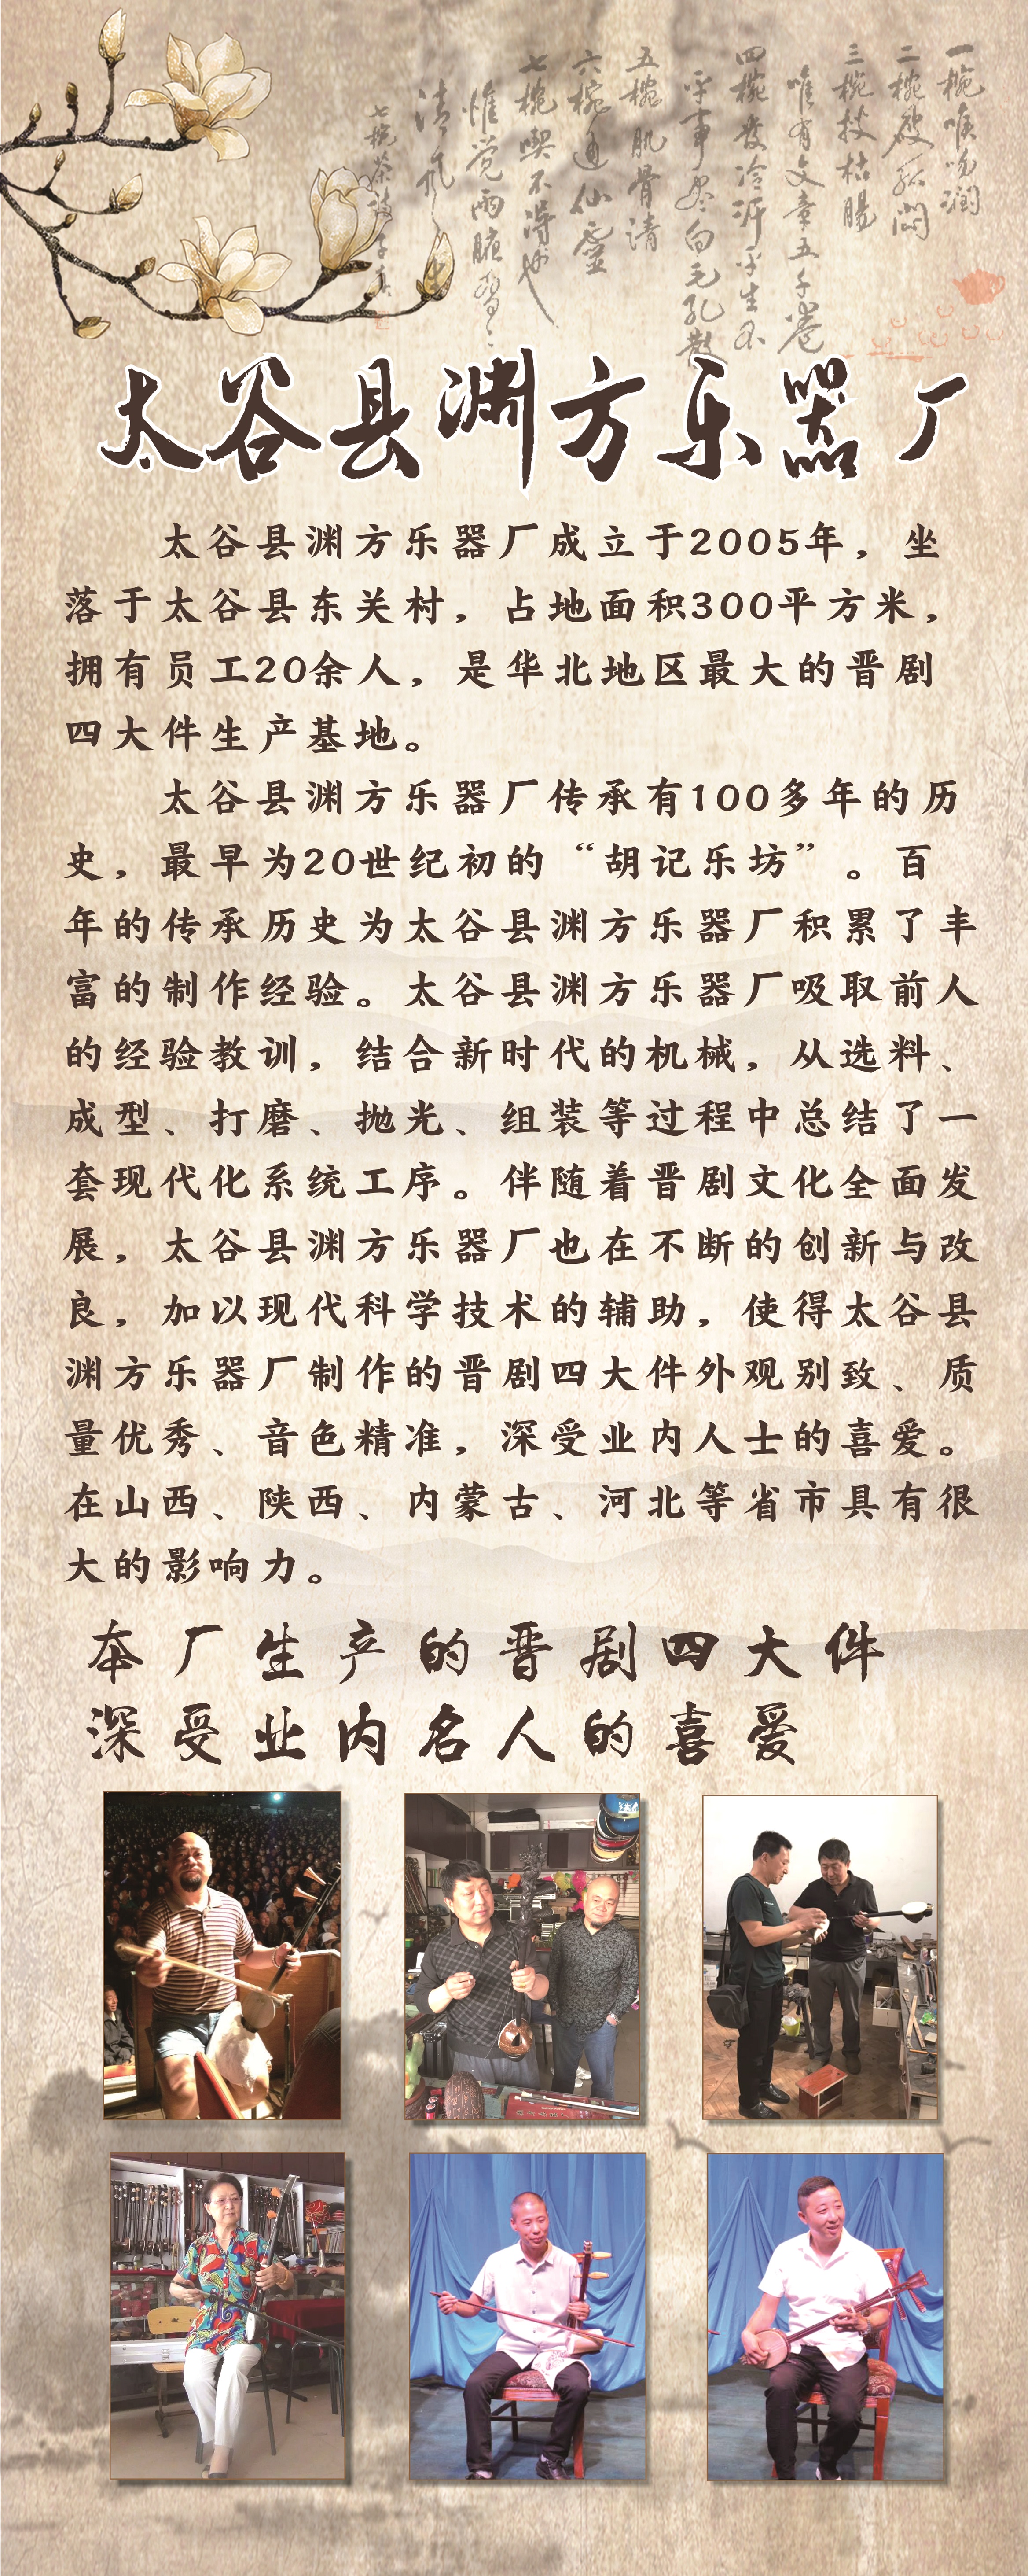 一椀喉吻润
二椀破孤闷
三椀搜枯肠
唯有文章五千卷
四椀发
平生不
平事尽向毛孔散
五椀肌骨清
六椀通仙灵
七椀喫不得也
惟觉两腋习习
清风
七椀茶诗
太谷县渊方乐器厂
太谷县渊方乐器厂成立于2005年，坐
落于太谷县东关村，占地面积300平方米，
拥有员工20余人，是华北地区最大的晋剧
四大件生产基地。
太谷县渊方乐器厂传承有100多年的历
史，最早为20世纪初的“胡记乐坊”。百
年的传承历史为太谷县渊方乐器厂积累了丰
富的制作经验。太谷县渊方乐器厂吸取前人
的经验教训，结合新时代的机械，从选料、
成型、打磨、抛光、组装等过程中总结了一
套现代化系统工序。伴随着晋剧文化全面发
展，太谷县渊方乐器厂也在不断的创新与改
良，加以现代科学技术的辅助，使得太谷县
渊方乐器厂制作的晋剧四大件外观别致、质
量优秀、音色精准，深受业内人士的喜爱。
在山西、陕西、内蒙古、河北等省市具有很
大的影响力。
本厂生产的晋剧四大件
深受业内名人的喜爱